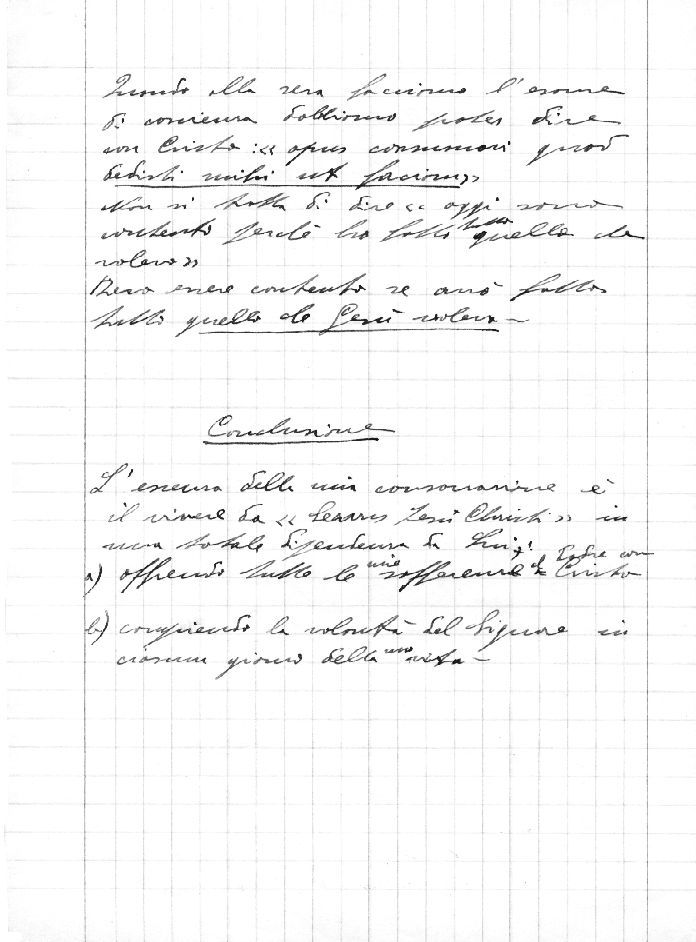 Quando alla sera facciamo l'esame
di coscienza dobbiamo poter dire
con Cristo: « opus consumavi quod
dedisti mihi ut faciam»
Non si tratta di dire « oggi sono
contento perché ho fatto tutto quello che
volevo»
Devo essere contento se avrò fatto
tutto quello che Gesù voleva -
Conclusione
L'essenza della mia consacrazione è
il vivere da « Servus Jesu Christi » in
una totale dipendenza da Lui:
a) offrendo tutte le mie sofferenze al Padre con Cristo
b) compiendo la volontà del Signore in
ciascun giorno della mia vita -